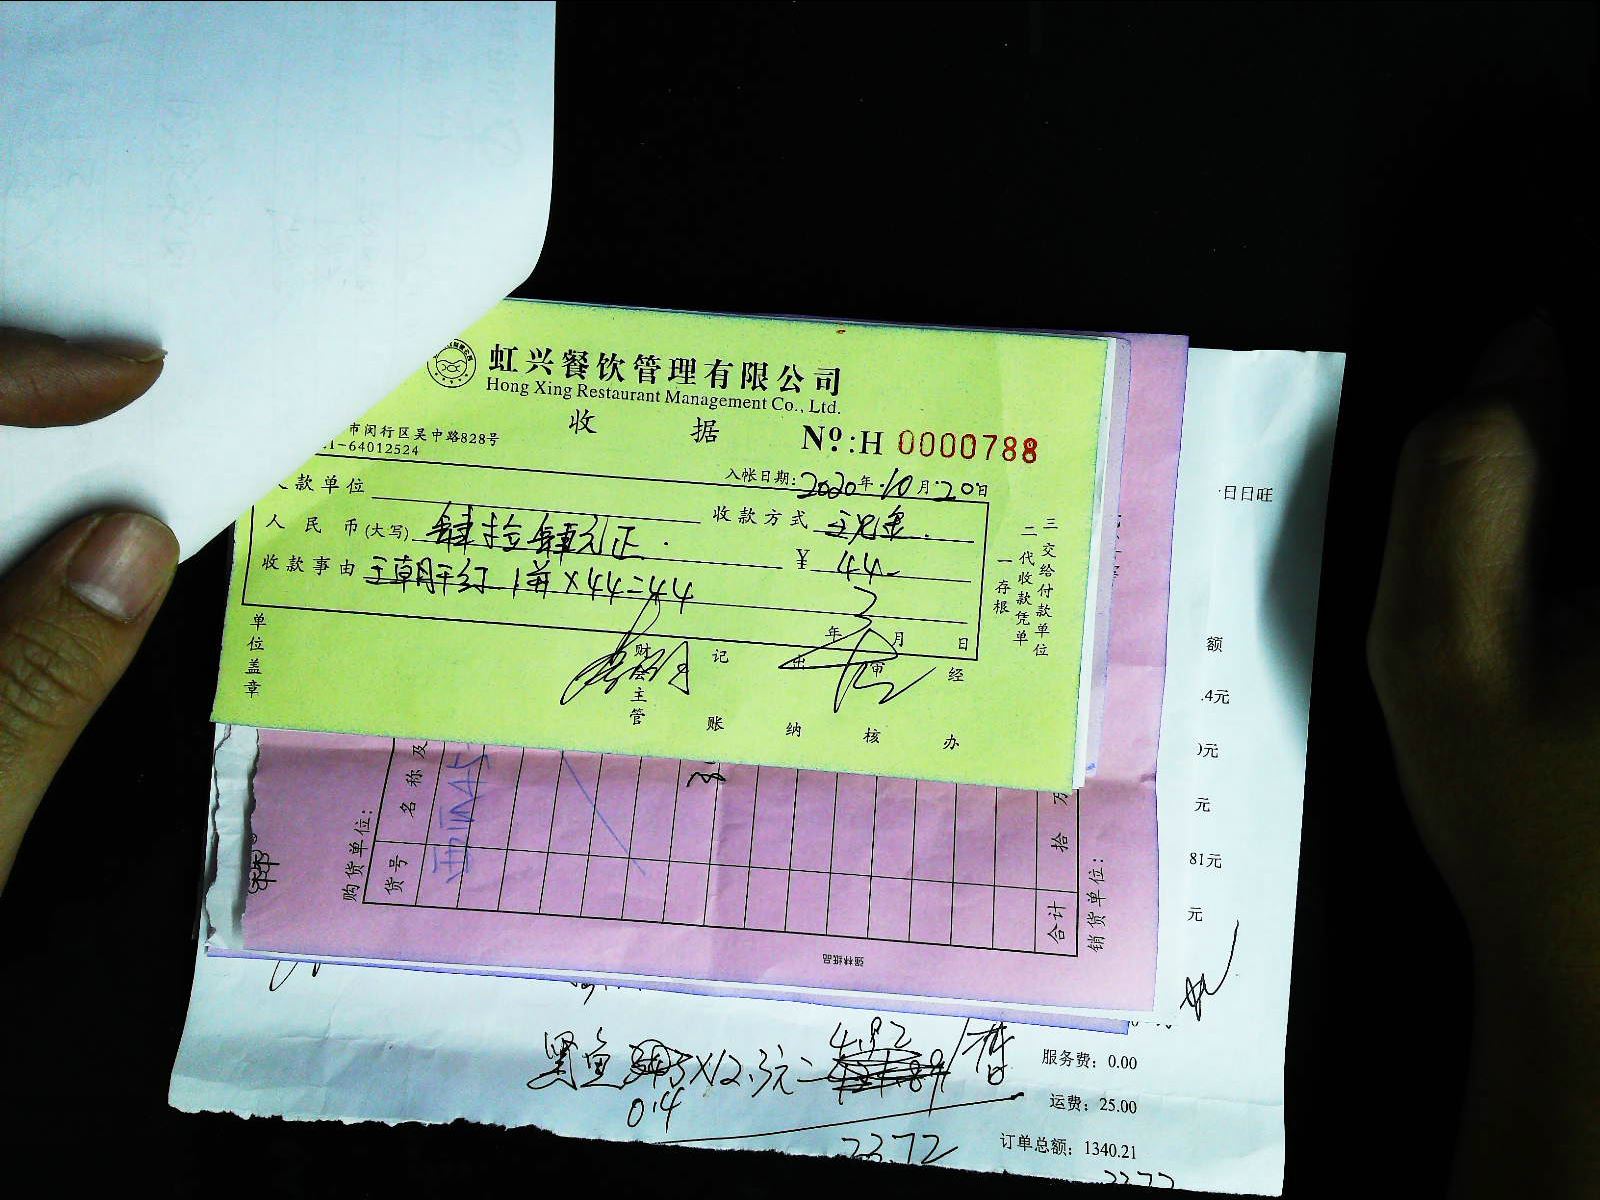 虹兴餐饮管理有限公司
Hong Xing Restaurant Management Co., Ltd.
收 据
Nº:H 0000788
市闵行区吴中路828号
1-64012524
入帐日期:2020年10月20日
款单位
收款方式 现金
人民币(大写) 肆拾肆元正
¥ 44
收款事由 王朝干红 1并×44=44
年 月 日
一存根
二代收款凭单
三交给付款单位
单位盖章
财会主管
记账
出纳
审核
经办
购货单位:
货号
名称及
合计
拾
万
销货单位:
强林纸品
日日旺
额
.4元
)元
元
81元
元
黑鱼 ×12.3元= 4.92
0.4
服务费: 0.00
运费: 25.00
2372
订单总额: 1340.21
2372